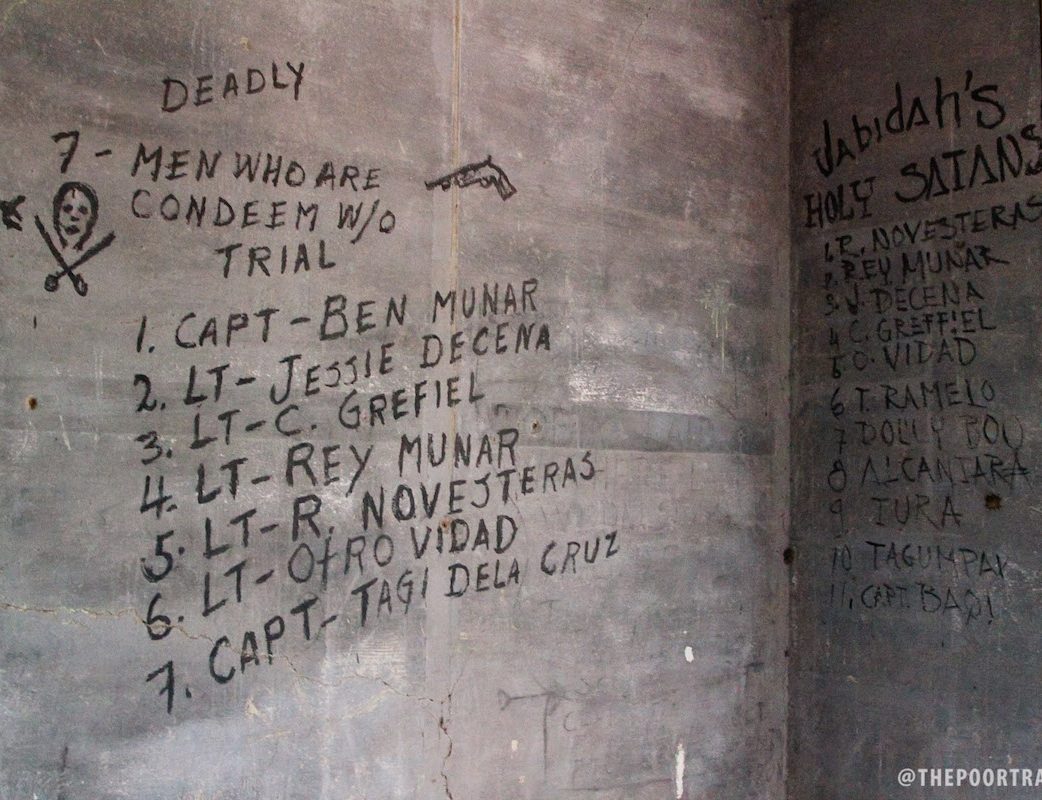 DEADLY
7 - MEN WHO ARE
CONDEEM W/O
TRIAL
1. CAPT - BEN MUNAR
2. LT - JESSIE DECENA
3. LT - C. GREFIEL
4. LT - REY MUNAR
5. LT - R. NOVESTERAS
6. LT - OTRO VIDAD
7. CAPT - TAGI DELA CRUZ
JAbidAh'S
HOLY SATANS
1. R. NOVESTERAS
2. REY MUÑAR
3. J. DECENA
4 C. GREFFIEL
5 O. VIDAD
6 T. RAMELO
7 DOLLY BOY
8 ALCANTARA
9 TURA
10 TAGUMPAY
11. CAPT.
@THEPOORTRA